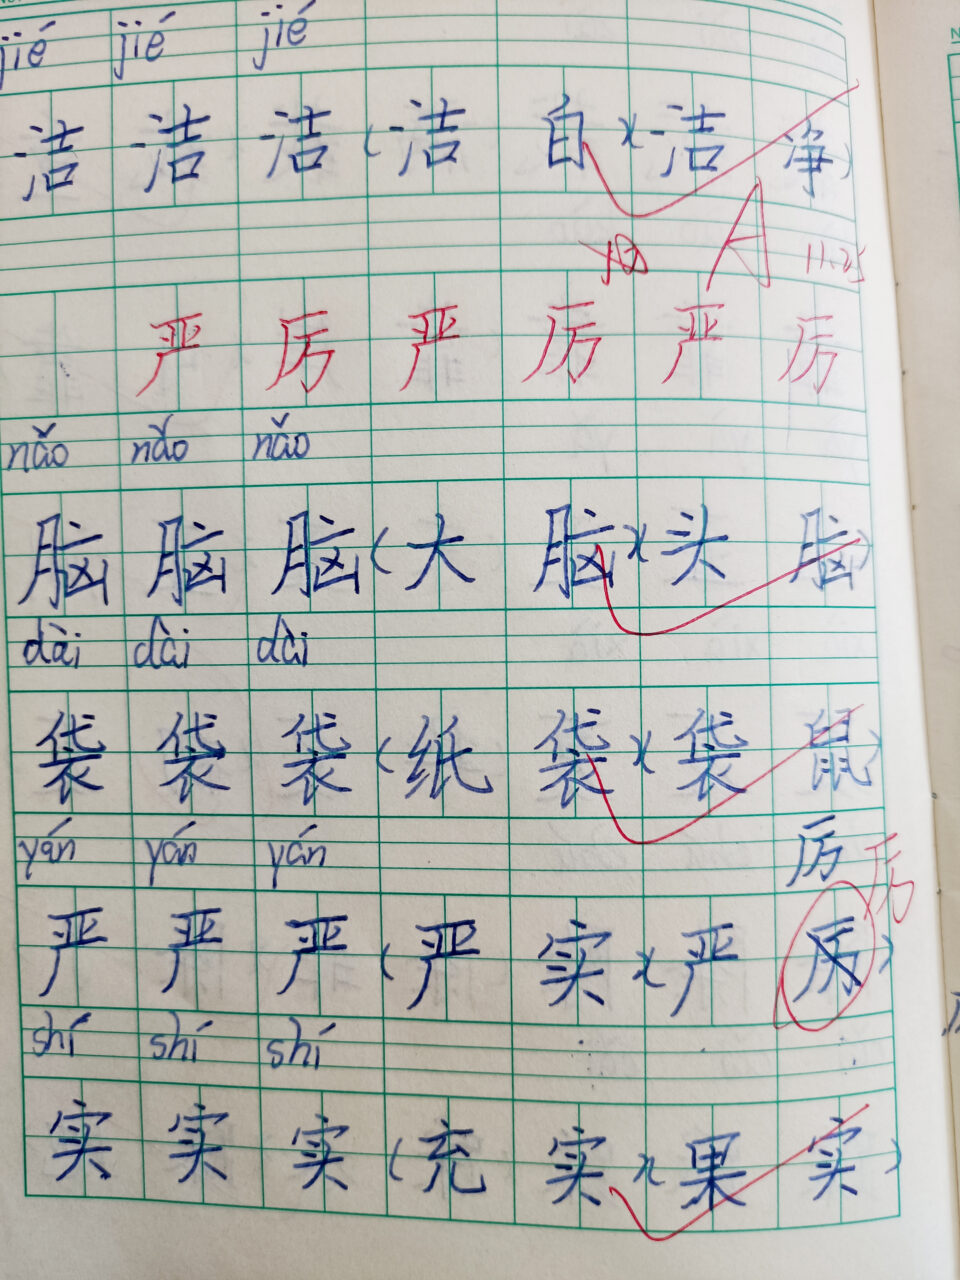 jié jié jié
洁 洁 洁 (洁 白 X 洁 净)
A 11.25
严 厉 严 厉 严 厉
nǎo nǎo nǎo
脑 脑 脑 (大 脑 X 头 脑)
dài dài dài
袋 袋 袋 (纸 袋 X 袋 鼠)
yán yán yán 厉 厉
严 严 严 (严 实 X 严 )
shí shí shí
实 实 实 (充 实 X 果 实)